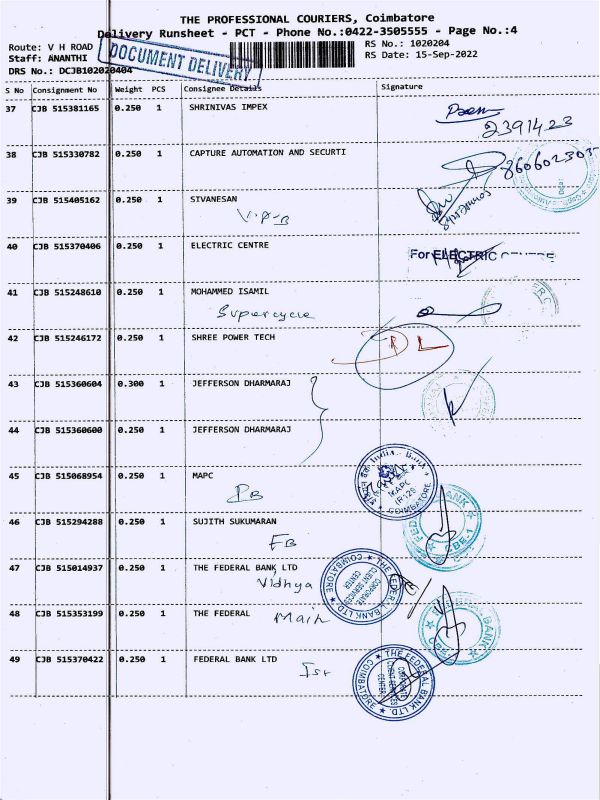 THE PROFESSIONAL COURIERS, Coimbatore
Delivery Runsheet - PCT - Phone No.:0422-3505555 - Page No.:4
Route: V H ROAD
RS No.: 1020204
Staff: ANANTHI
RS Date: 15-Sep-2022
DRS No.: DCJB102020404
DOCUMENT DELIVERY
S No Consignment No Weight PCS Consignee Details Signature
37 CJB 515381165 0.250 1 SHRINIVAS IMPEX
2391423
38 CJB 515330782 0.250 1 CAPTURE AUTOMATION AND SECURTI
39 CJB 515405162 0.250 1 SIVANESAN
40 CJB 515370406 0.250 1 ELECTRIC CENTRE
For ELECTRIC CENTRE
41 CJB 515248610 0.250 1 MOHAMMED ISAMIL
Supercycle
42 CJB 515246172 0.250 1 SHREE POWER TECH
43 CJB 515360604 0.300 1 JEFFERSON DHARMARAJ
44 CJB 515360600 0.250 1 JEFFERSON DHARMARAJ
45 CJB 515068954 0.250 1 MAPC
MAPC
COIMBATORE
46 CJB 515294288 0.250 1 SUJITH SUKUMARAN
FB
47 CJB 515014937 0.250 1 THE FEDERAL BANK LTD
Vidhya
THE FEDERAL BANK LTD. COIMBATORE
CORPORATE CLIENT SERVICES CENTER
48 CJB 515353199 0.250 1 THE FEDERAL
Main
49 CJB 515370422 0.250 1 FEDERAL BANK LTD
THE FEDERAL BANK LTD. COIMBATORE